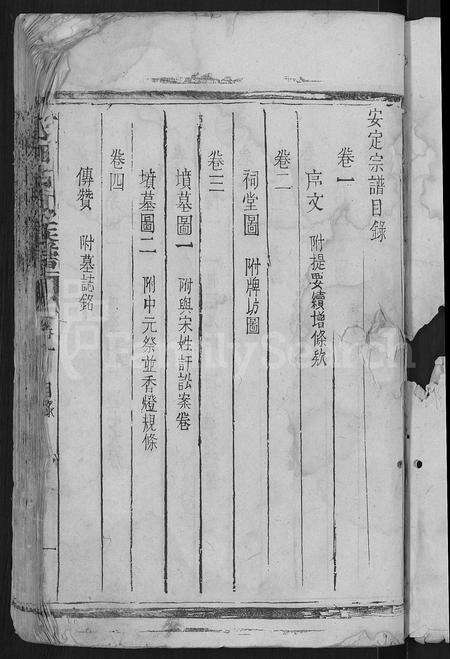 安定宗譜目錄
卷一
序文 附提要續增條欵
卷二
祠堂圖 附牌坊圖
卷三
墳墓圖一 附與宋姓訐訟案卷
墳墓圖二 附中元祭並香燈規條
卷四
傳贊 附墓誌銘
目錄
FamilySearch